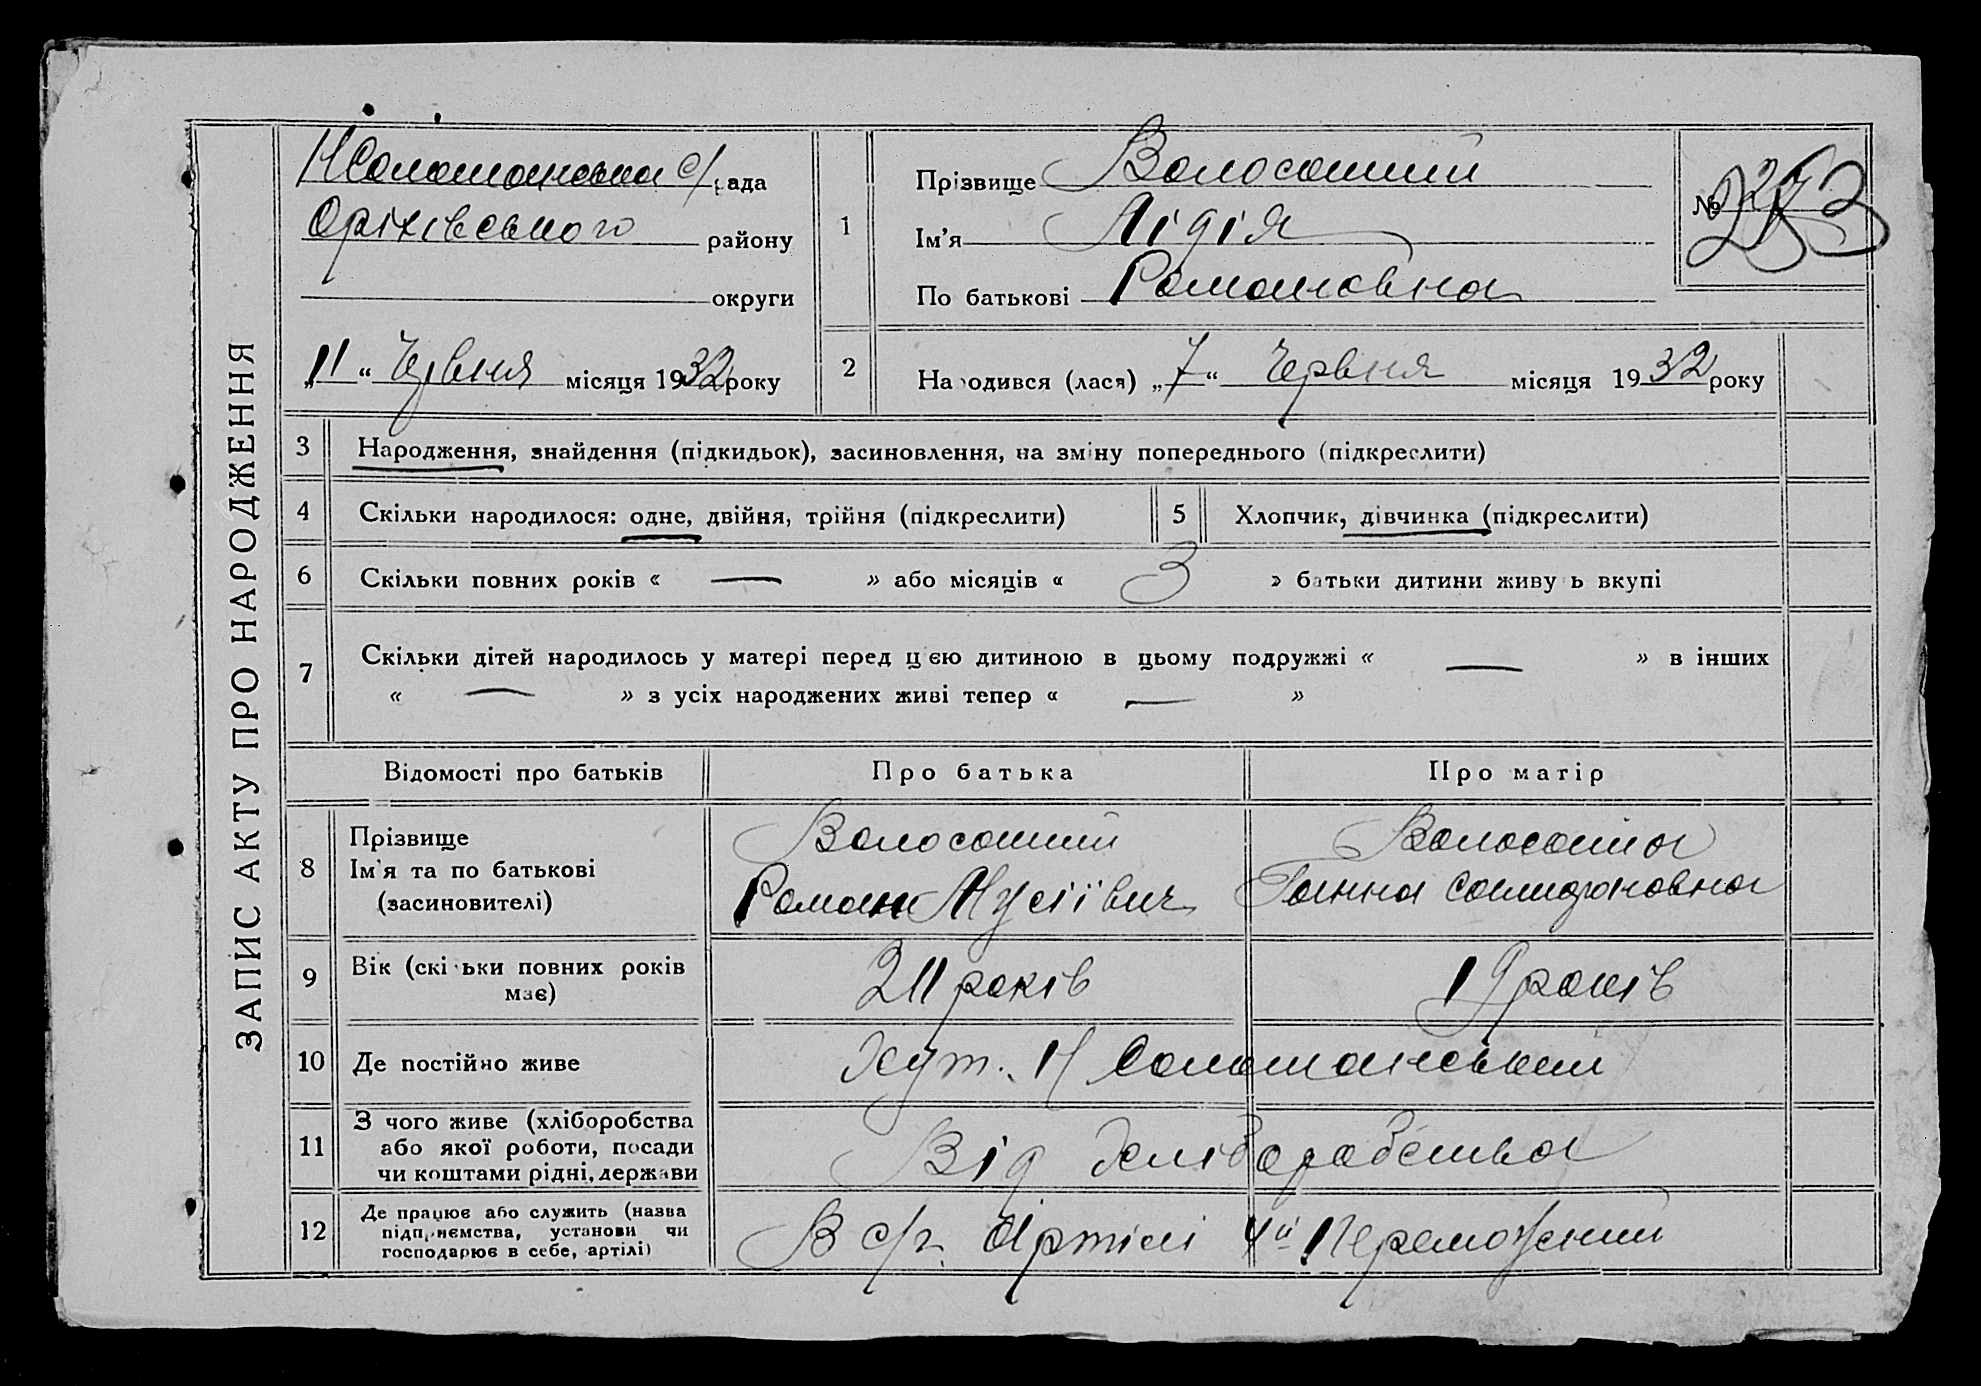 ЗАПИС АКТУ ПРО НАРОДЖЕННЯ
Н Соломонська с/рада
Оріхівського району
округи
„11“ Червня місяця 1932 року
1
Прізвище Волосаний
Ім'я Лідія
По батькові Романовна
№
253
2
Народився (лася) „7“ Червня місяця 1932 року
3 Народження, знайдення (підкидьок), засиновлення, на зміну попереднього (підкреслити)
4 Скільки народилося: одне, двійня, трійня (підкреслити)
5 Хлопчик, дівчинка (підкреслити)
6 Скільки повних років « — » або місяців « 3 » батьки дитини живуть вкупі
7 Скільки дітей народилось у матері перед цією дитиною в цьому подружжі « — » в інших
« — » з усіх народжених живі тепер « — »
Відомості про батьків Про батька Про матір
8 Прізвище
Ім'я та по батькові
(засиновителі)
Волосаний
Роман Мусіївич
Ганна
9 Вік (скільки повних років
має)
211 років
19 років
10 Де постійно живе
Хут. Н Соломанський
11 З чого живе (хліборобства
або якої роботи, посади
чи коштами рідні, держави
Від хліборобства
12 Де працює або служить (назва
підприємства, установи чи
господарює в себе, артілі)
В с/г. Артілі